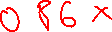 0 86 x